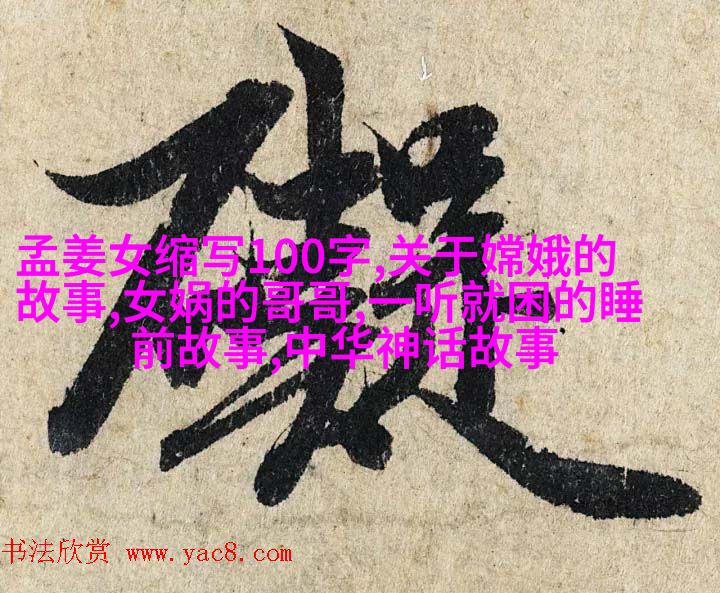 孟姜女缩写100字,关于嫦娥的
故事,女娲的哥哥,一听就困的睡
前故事,中华神话故事
书法欣赏 www.yac8.com